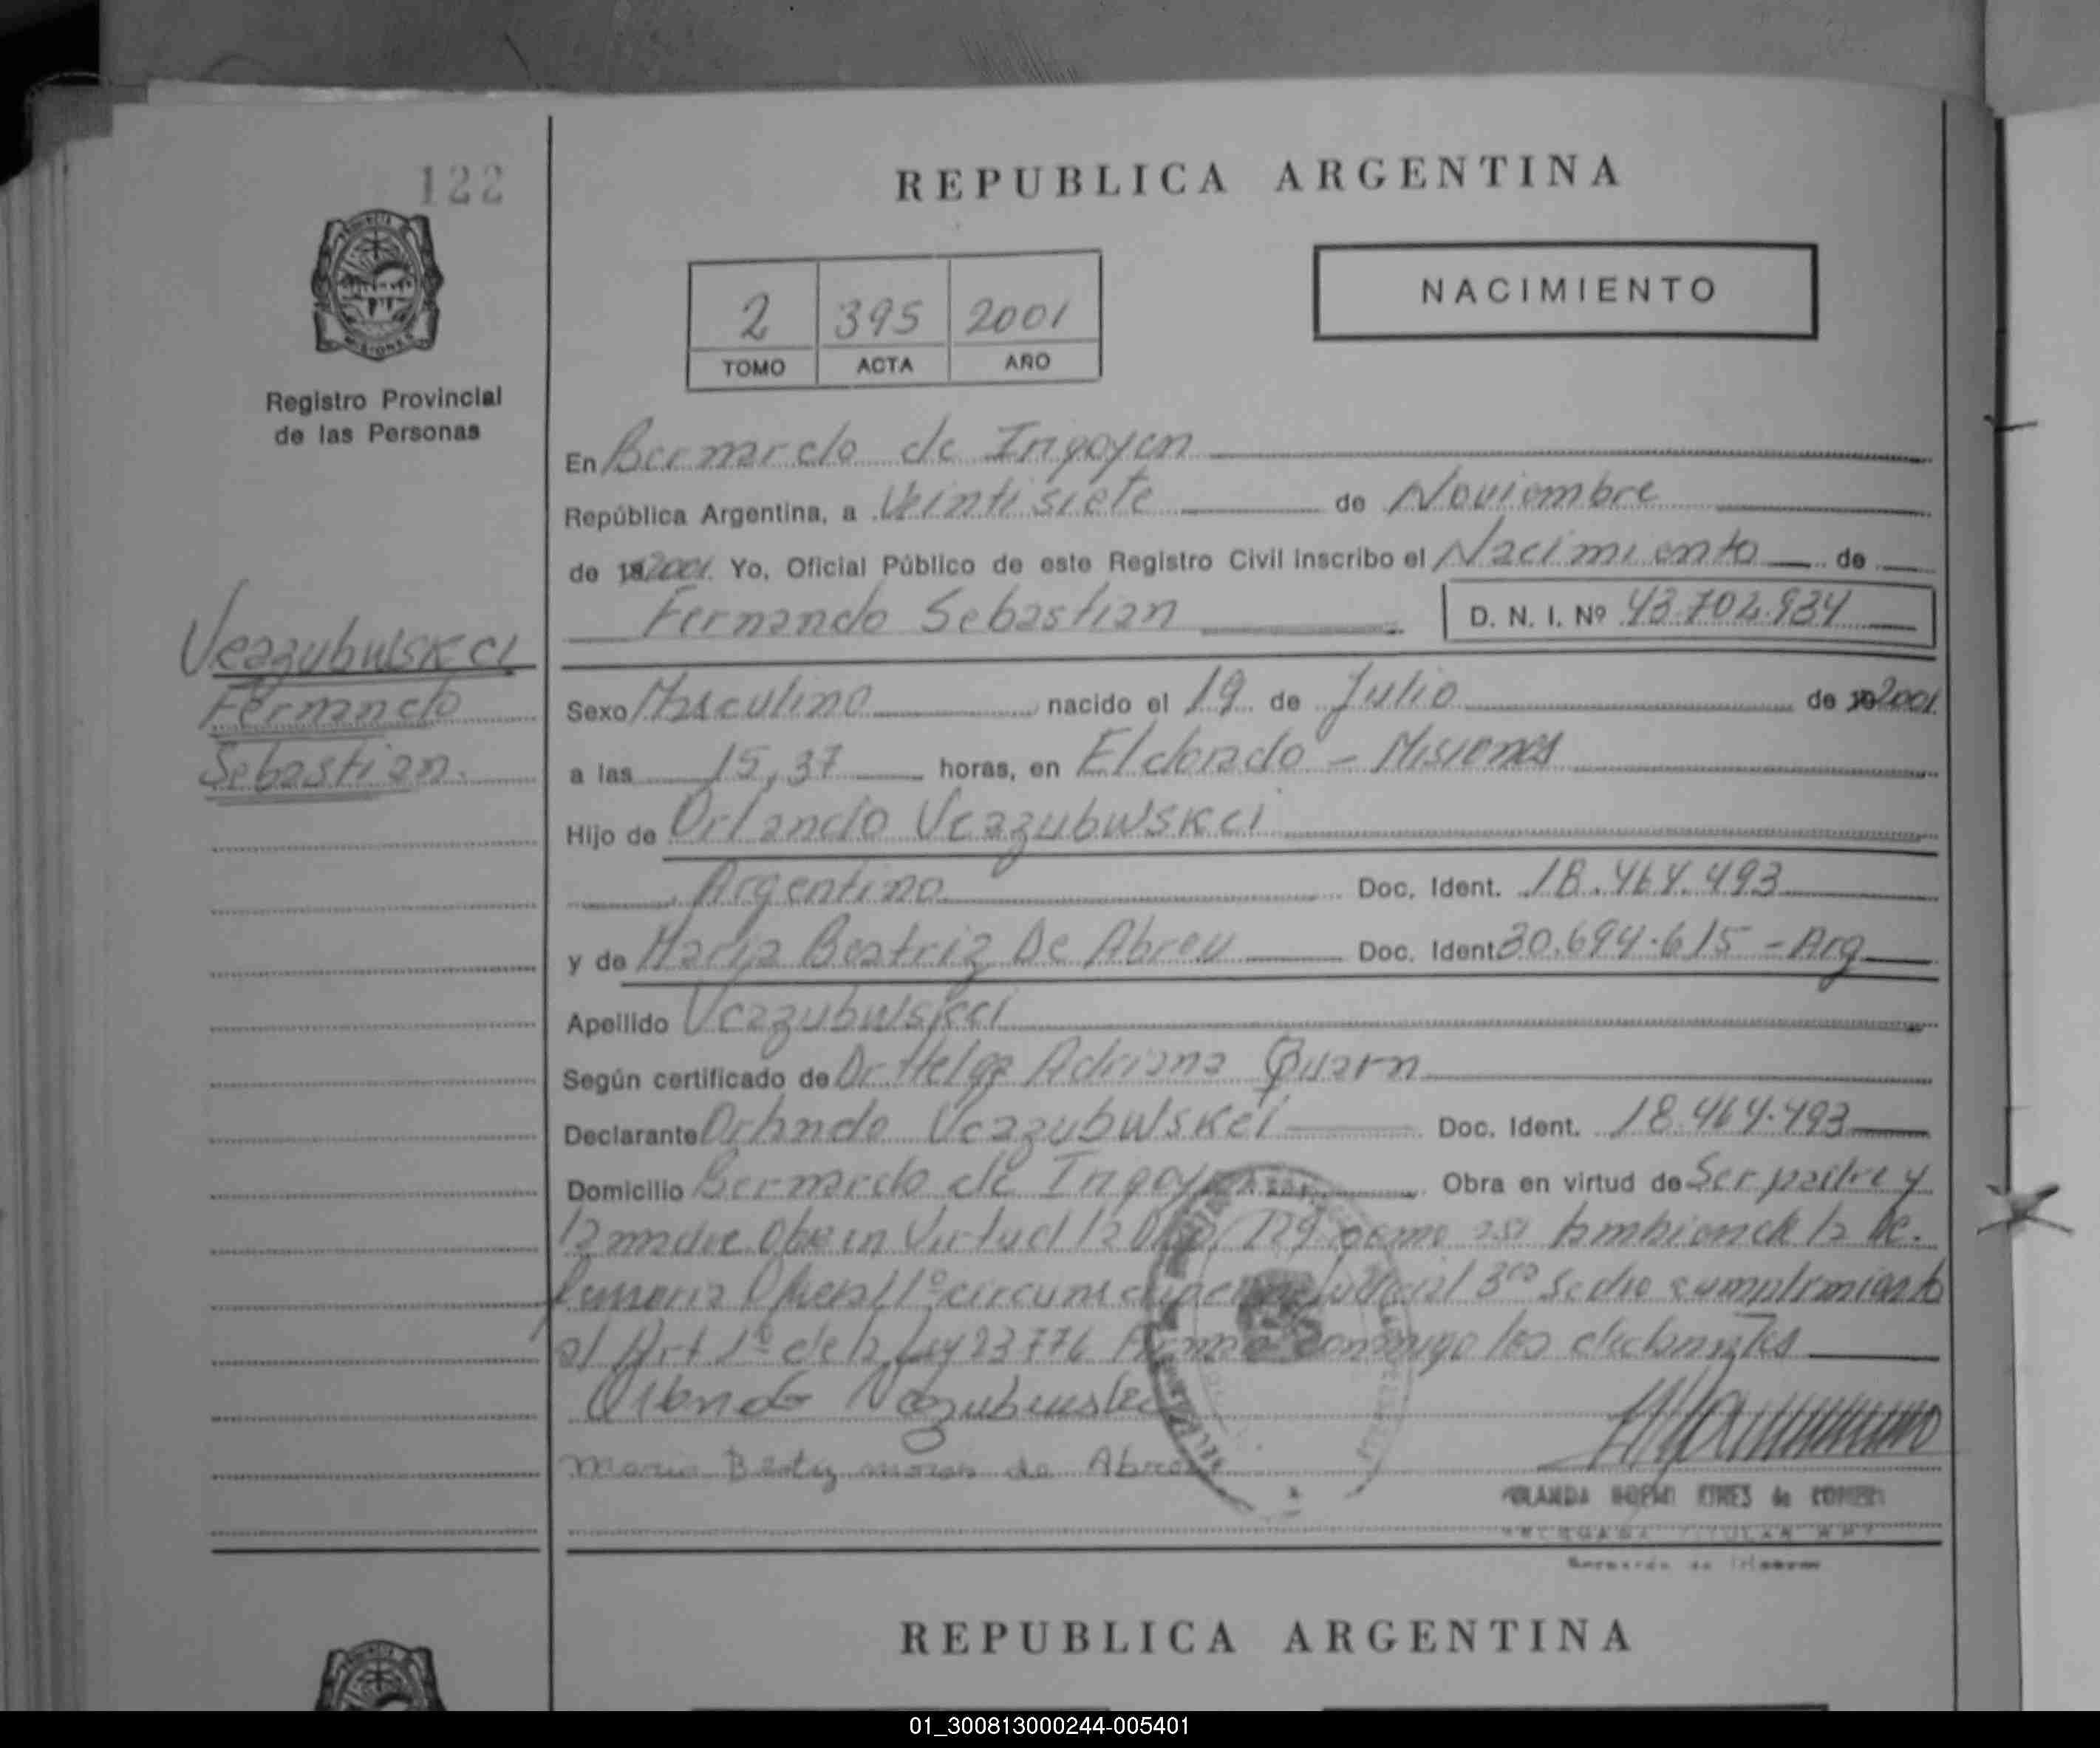 122
Registro Provincial
de las Personas
REPUBLICA ARGENTINA
2 395 2001
TOMO ACTA AÑO
NACIMIENTO
En Bernardo de Irigoyen
República Argentina, a Veintisiete de Noviembre
de 19 2001. Yo, Oficial Público de este Registro Civil inscribo el Nacimiento de
Fernando Sebastian D. N. I. Nº 43.702.934
Vcazubwskci
Fernando
Sebastian.
Sexo Masculino nacido el 19 de Julio de 19 2001
a las 15,37 horas, en Eldorado - Misiones
Hijo de Orlando Vcazubwskci
Argentina Doc. Ident. 18.464.493
y de Maria Beatriz De Abreu Doc. Ident. 30.694.615 - Arg
Apellido Vcazubwskci
Según certificado de Dr. Helga Adriana
Declarante Orlando Vcazubwskci Doc. Ident. 18.464.493
Domicilio Bernardo de Irigoyen Obra en virtud de Ser padre y
la madre Obra en Virtud la 129 como asi tambien de la De.
fensoria Oficial 1º circunscripcion Judicial 3ra cumplimiento
al Art 1º de la Ley 23776 Firman conmigo los declarantes
Orlando Vcazubwskci
Maria de Abreu
de
Bernardo de Irigoyen
REPUBLICA ARGENTINA
01_300813000244-005401